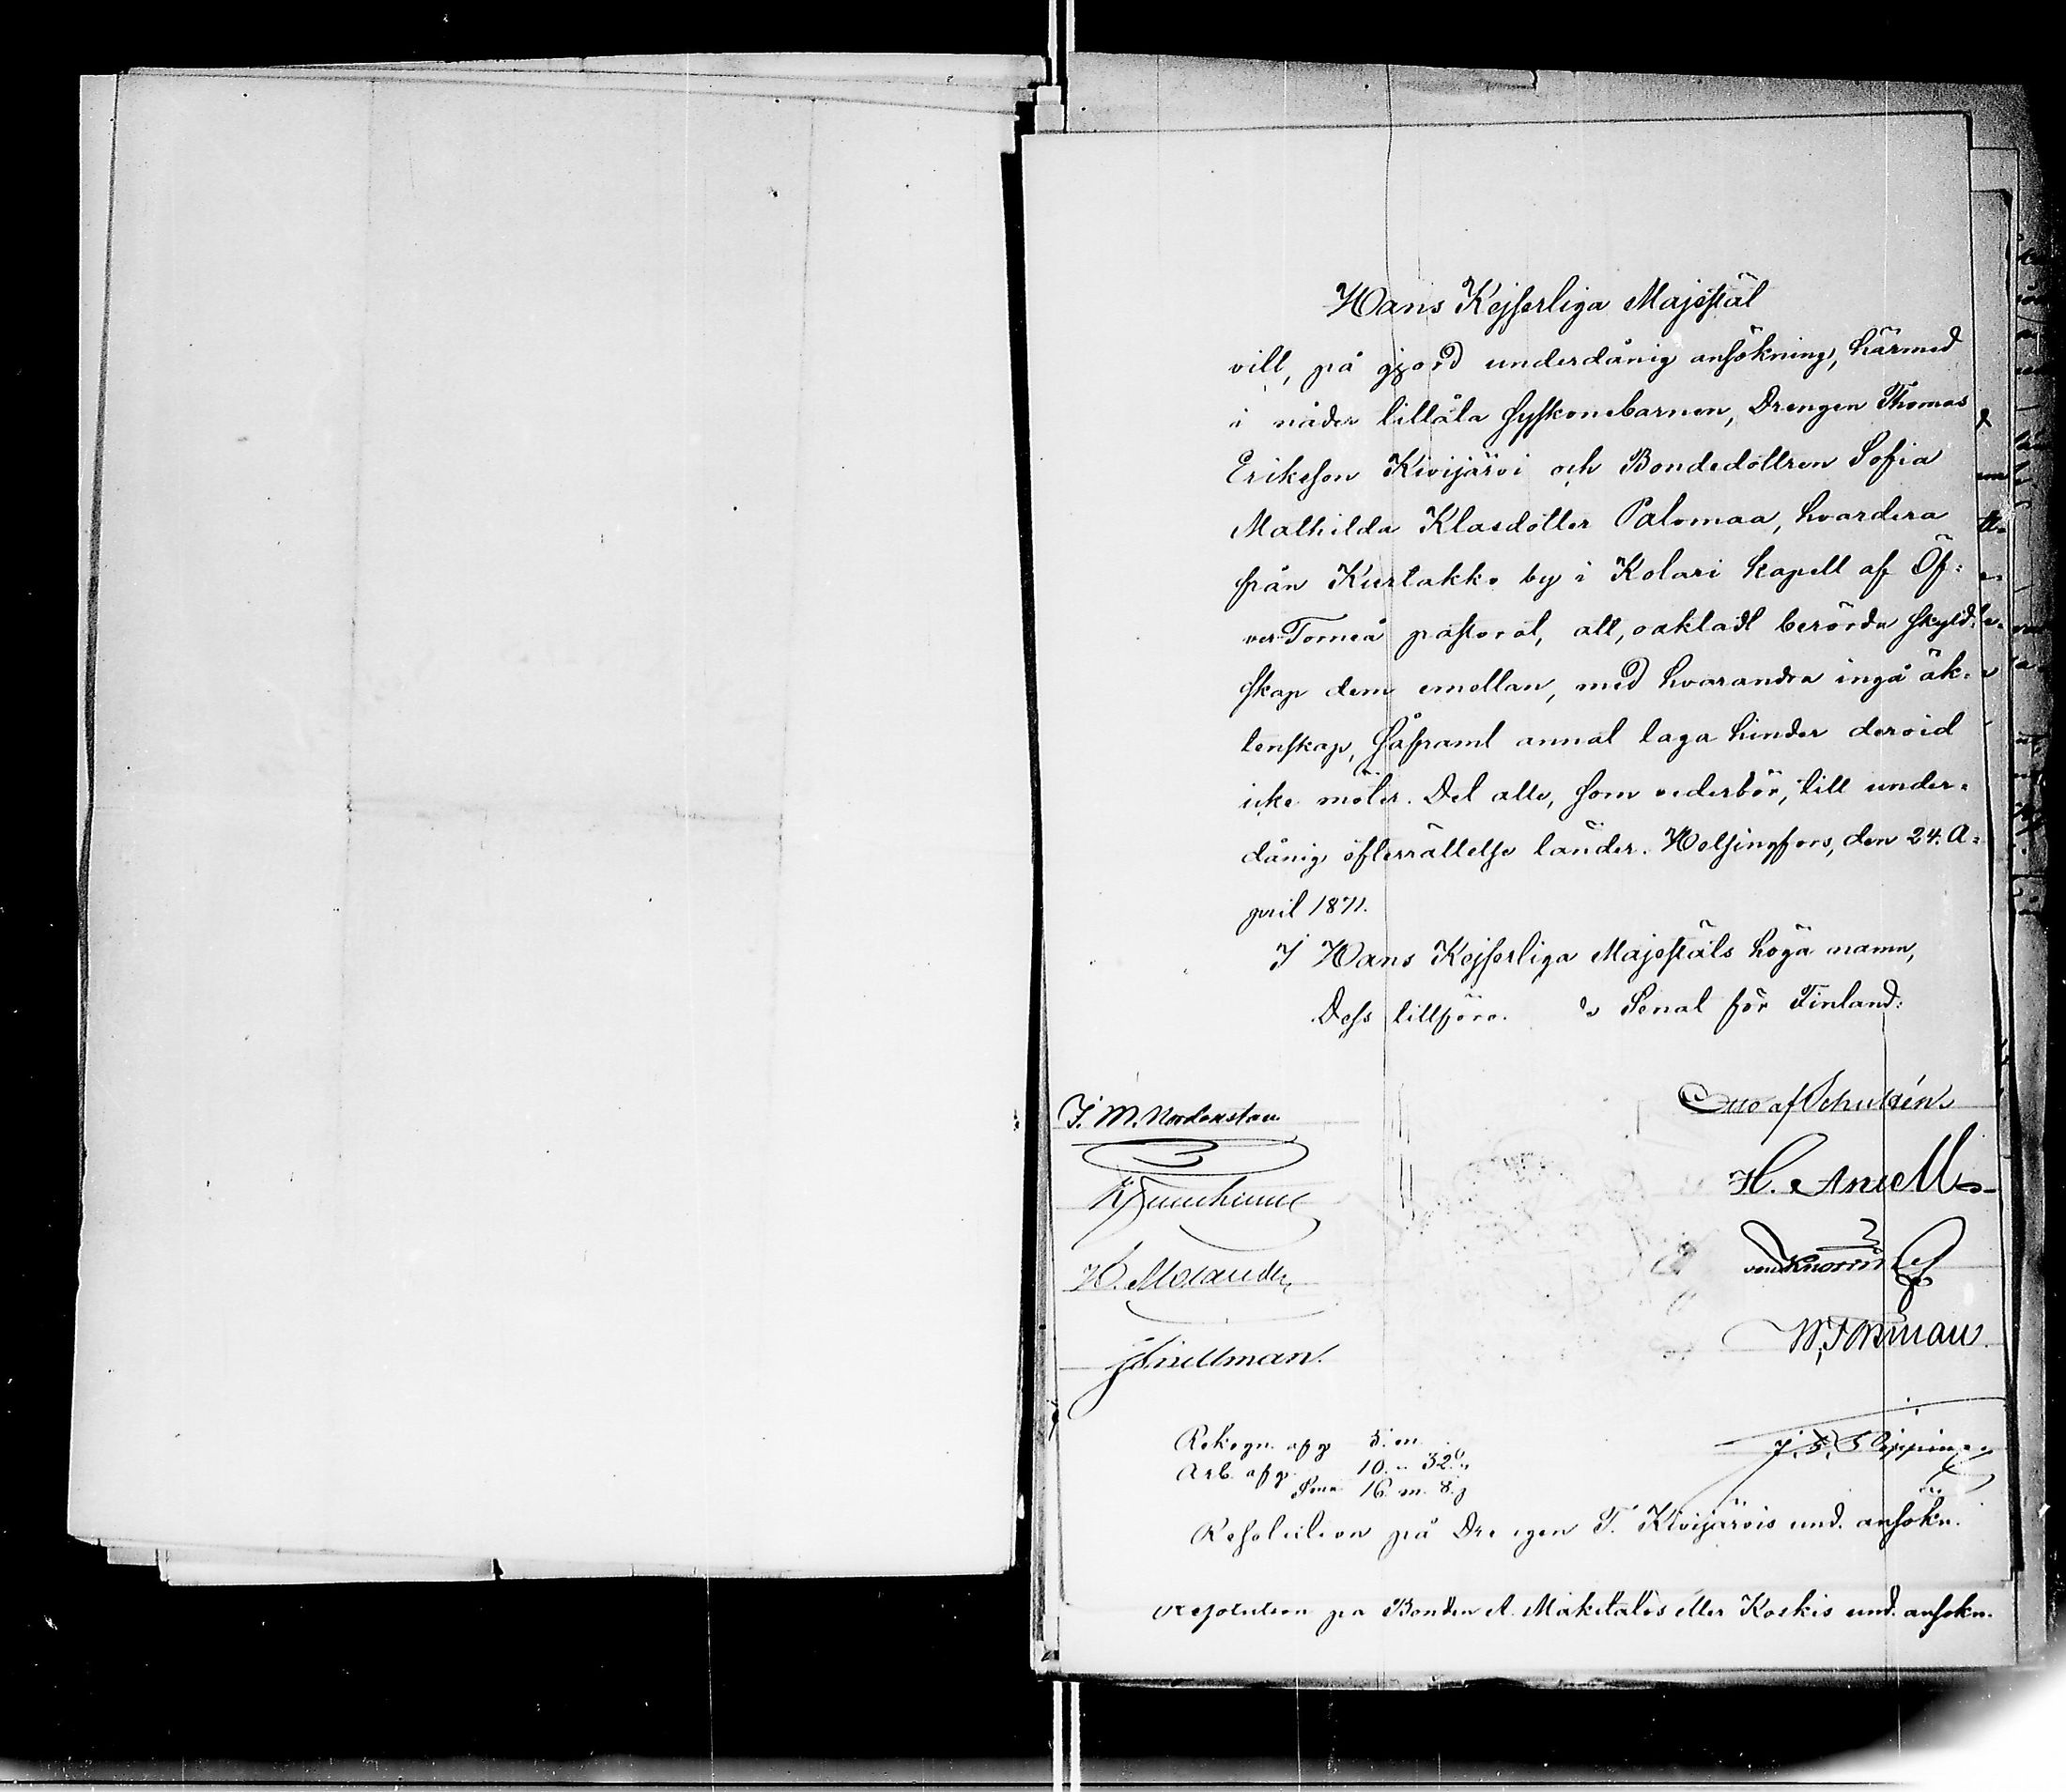 Hans Kejserliga Majestät
vill, på gjord underdånig ansökning, härmed
i nåder tillåta syskonebarnen, Drengen Thomas
Eriksson Kivijärvi och Bondedottren Sofia
Mathilda Klasdotter Palomaa, hvardera
från Kurtakko by i Kolari kapell af Öf-
ver-Torneå pastorat, att, oaktadt berörda skyld-
skap dem emellan, med hvarandra ingå äk-
tenskap, såframt annat laga hinder dervid
icke möter. Det alle, som vederbör, till under-
dånig efterrättelse länder. Helsingfors, den 24. A-
pril 1871.
I Hans Kejserliga Majestäts höga namn,
Dess tillföro. Senat för Finland:
J. M. Nordenstam
Otto af Schultén
H. Antell
H. Molander
von Knorring
J Snellman.
W. Forsman
Rekogn. afg 5. m.
Arb. afg. 10. " 32. "
S:ma 16. m. 8. p
Resolution på Drengen T. Kivijärvis und. ansökn.
Resolution på Bonden A. Mäkitalos eller Koskis und. ansökn.